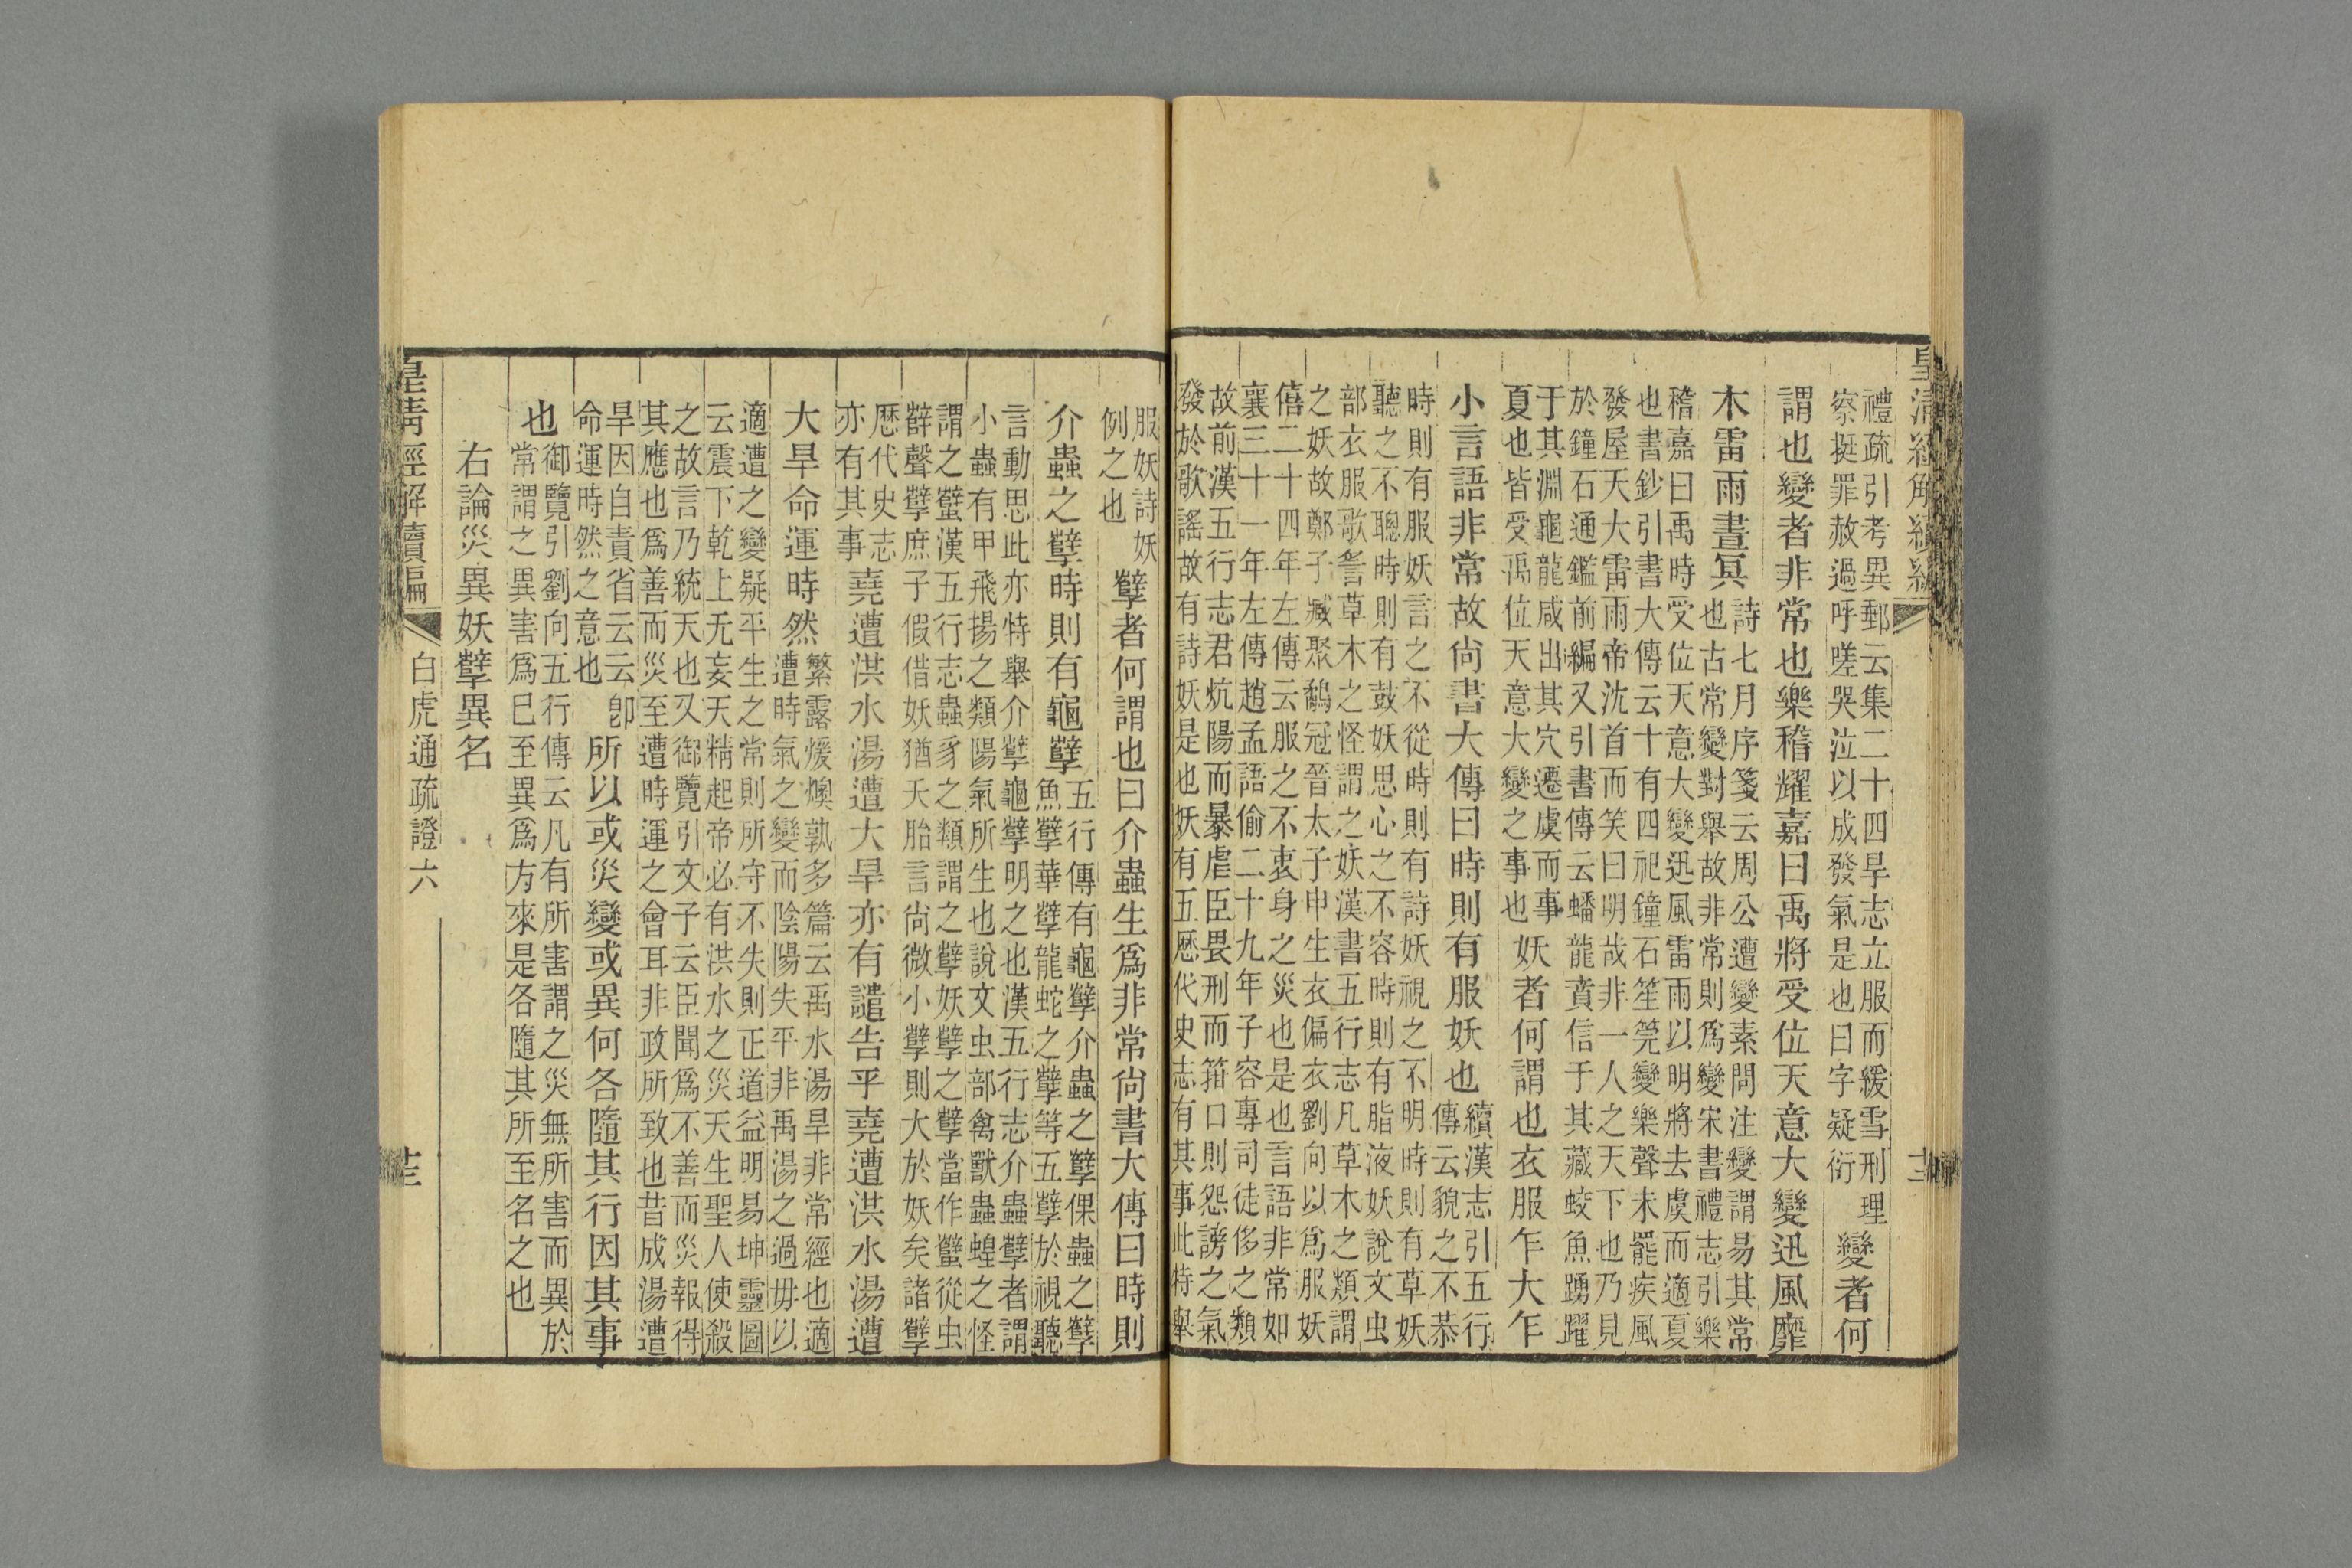 禮疏引考異郵云集二十四旱志立服而緩雪刑理
察挺罪赦過呼嗟哭泣以成發氣是也曰字疑衍
變者何
謂也變者非常也樂稽耀嘉曰禹將受位天意大變迅風靡
木雷雨晝冥
詩七月序箋云周公遭變素問注變謂易其常
也古常變對舉故非常則爲變宋書禮志引樂
稽嘉曰禹時受位天意大變迅風雷雨以明將去虞而適夏
也書鈔引書大傳云十有四祀鐘石笙筦變樂聲未罷疾風
發屋天大雷雨帝沈首而笑曰明哉非一人之天下也乃見
於鐘石通鑑前編又引書傳云蟠龍賁信于其藏蛟魚踴躍
于其淵龜龍咸出其穴遷虞而事
夏也皆受禹位天意大變之事也
妖者何謂也衣服乍大乍
小言語非常故尙書大傳曰時則有服妖也
續漢志引五行
傳云貌之不恭
時則有服妖言之不從時則有詩妖視之不明時則有草妖
聽之不聰時則有鼓妖思心之不容時則有脂液妖說文虫
部衣服歌䚻草木之怪謂之妖漢書五行志凡草木之類謂
之妖故鄭子臧聚鷸冠晉太子申生衣偏衣劉向以爲服妖
僖二十四年左傳云服之不衷身之災也是也言語非常如
襄三十一年左傳趙孟語偷二十九年子容專司徒侈之類
故前漢五行志君炕陽而暴虐臣畏刑而箝口則怨謗之氣
發於歌謠故有詩妖是也妖有五歷代史志有其事此特舉
服妖詩妖
例之也
孽者何謂也曰介蟲生爲非常尙書大傳曰時則
介蟲之孽時則有龜孽
五行傳有龜孽介蟲之孽倮蟲之孽
魚孽華孽龍蛇之孽等五孽於視聽
言動思此亦特舉介孽龜孽明之也漢五行志介蟲孽者謂
小蟲有甲飛揚之類陽氣所生也說文虫部禽獸蟲蝗之怪
謂之蠥漢五行志蟲豸之類謂之孽妖孽之孽當作蠥從虫
辥聲孽庶子假借妖猶夭胎言尙微小孽則大於妖矣諸孽
歷代史志
亦有其事
堯遭洪水湯遭大旱亦有譴告乎堯遭洪水湯遭
大旱命運時然
繁露煖燠孰多篇云禹水湯旱非常經也適
遭時氣之變而陰陽失平非禹湯之過毋以
適遭之變疑平生之常則所守不失則正道益明易坤靈圖
云震下乾上无妄天精起帝必有洪水之災天生聖人使殺
之故言乃統天也又御覽引文子云臣聞爲不善而災報得
其應也爲善而災至遭時運之會耳非政所致也昔成湯遭
旱因自責省云云卽
命運時然之意也
所以或災變或異何各隨其行因其事
也
御覽引劉向五行傳云凡有所害謂之災無所害而異於
常謂之異害爲已至異爲方來是各隨其所至名之也
右論災異妖孽異名
皇清經解續編
白虎通疏證六